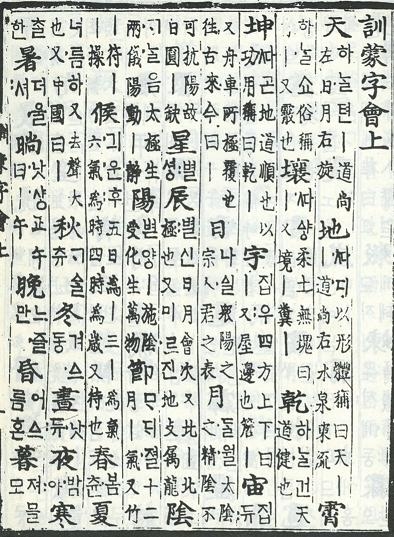 訓蒙字會上
天하ᄂᆞᆯ텬ㅣ道尙左日月右旋地ᄯᅡ디以形體稱曰天ㅣ道尙右水泉東流霄
하ᄂᆞᆯ쇼俗稱ㅣ又霰也壤ᄯᅡᅀᅣᇰ柔土無塊曰ㅣ又境糞ㅣ乾하ᄂᆞᆯ건天道健也
坤ᄯᅡ곤地道順也以功用稱曰乾ㅣ宇집우四方上下曰ㅣ又屋邊也簷ㅣ宙집듀
又舟車所極覆也往古來今曰ㅣ日나ᅀᅵᆯ衆陽之宗人君之表月ᄃᆞᆯ월太陰之精陰不
可抗陽故日圓ㅣ缺星별셩辰별신日月會次又北ㅣ北極也又미르진地支屬龍陰
ᄀᆞᄂᆞᆯ음太極生兩儀陽動ㅣ靜陽볃양ㅣ施陰受化生萬物節ᄆᆞᄃᆡ졀十二月ㅣ氣又竹
ㅣ符ㅣㅣ操候긔운후五日爲ㅣ三ㅣ爲氣六氣爲時四時爲歲又待也春봄츈夏
녀름하又去聲大也又中國曰ㅣ秋ᄀᆞᅀᆞᆯ츄冬겨ᅀᅳ동晝낫듀夜밤야寒
출한暑더울셔晌낫샹ㅣ午曰ㅣ午晩느즐만昏어스름혼暮져믈모